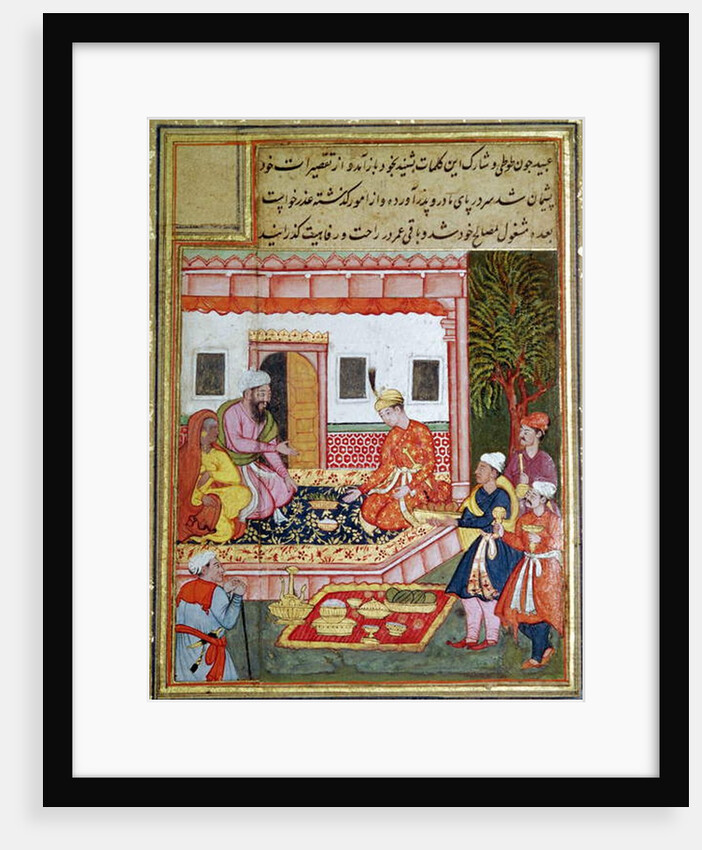 عبید چون طوطی و شارک این کلمات بشنید بخود باز آمد و از تقصیرات خود
پشیمان شد سر در پای مادر و پدر آورده و از امور گذشته عذر خواست
بعده مشغول مصالح خود شد و باقی عمر در راحت و رفاهیت گذرانید